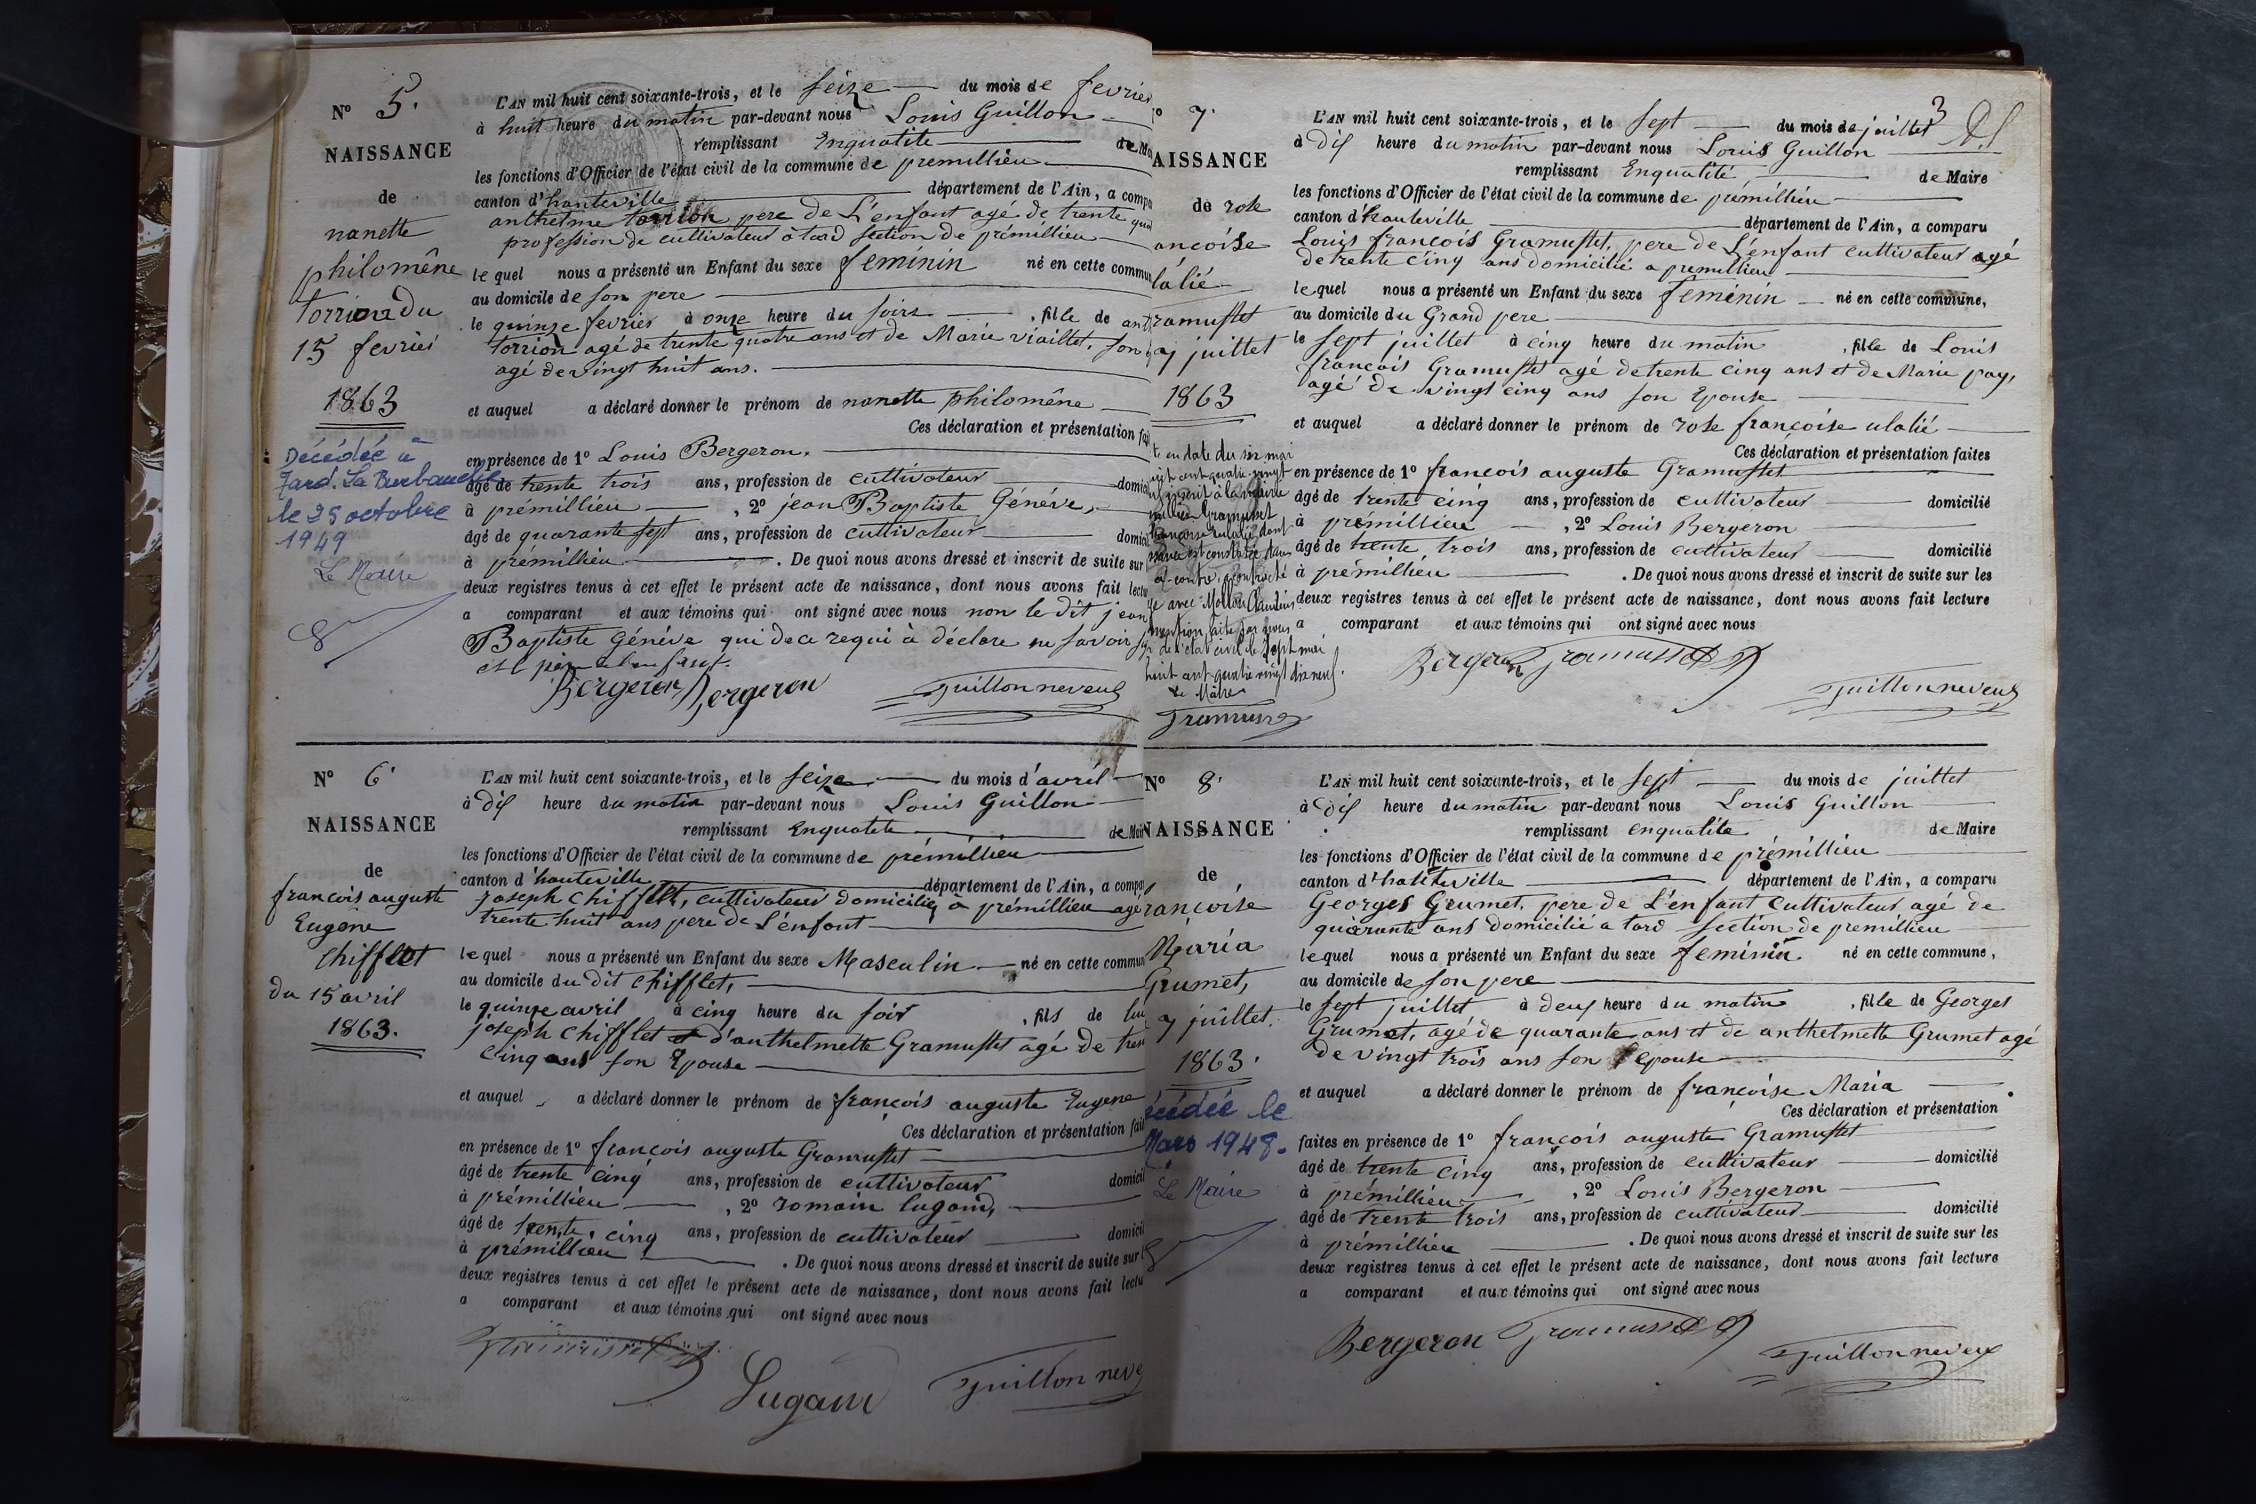 N° 5.
NAISSANCE
de
nanette
philomène
torrion du
15 fevrier
1863
Décédée à
Tard. La Burbanche
le 25 octobre
1949
Le Maire
L'AN mil huit cent soixante-trois, et le seize du mois de fevrier
à huit heure du matin par-devant nous Louis Guillon
remplissant Enqualité de
les fonctions d'Officier de l'état civil de la commune de premillieu
canton d'hauteville département de l'Ain, a compa
anthelme torrion pere de L'enfant agé de trente
profession de cultivateur à tard section de prémillieu
lequel nous a présenté un Enfant du sexe feminin né en cette commun
au domicile de son pere
le quinze fevrier à onze heure du soire , fille de
torrion agé de trente quatre ans et de Marie viaillet, son
agé de vingt huit ans.
et auquel a déclaré donner le prénom de nanette philomène
Ces déclaration et présentation
en présence de 1° Louis Bergeron,
âgé de trente trois ans, profession de cultivateur
à prémillieu , 2° jean Baptiste Génève,
âgé de quarante sept ans, profession de cultivateur
à prémillieu . De quoi nous avons dressé et inscrit de suite sur
deux registres tenus à cet effet le présent acte de naissance, dont nous avons fait
a comparant et aux témoins qui ont signé avec nous non le dit jean
Baptiste Génève qui de ce requi à déclare ne savoir
Bergeron Bergeron Guillon neveu
N° 6.
NAISSANCE
de
francois auguste
Eugene
Chifflet
du 15 avril
1863.
L'AN mil huit cent soixante-trois, et le seize du mois d'avril
à dix heure du matin par-devant nous Louis Guillon
remplissant Enqualite de
les fonctions d'Officier de l'état civil de la commune de prémillieu
canton d'hauteville département de l'Ain, a
joseph Chifflet, cultivateur domicilié a prémillieu agé
trente huit ans pere de L'enfant
lequel nous a présenté un Enfant du sexe Masculin né en cette commun
au domicile du dit Chifflet,
le quinze avril à cinq heure du soir , fils de
joseph Chifflet et d'anthelmette Gramusset agé de
Cinq ans son Epouse
et auquel a déclaré donner le prénom de françois auguste Eugene
Ces déclaration et présentation
en présence de 1° françois auguste Gramusset
âgé de trente cinq ans, profession de cultivateur
à prémillieu , 2° romain lugand,
âgé de trente cinq ans, profession de cultivateur
à prémillieu . De quoi nous avons dressé et inscrit de suite sur
deux registres tenus à cet effet le présent acte de naissance, dont nous avons fait
a comparant et aux témoins qui ont signé avec nous
Gramusset
Lugand Guillon
7.
AISSANCE
de rose
ançoise
lalié
ramusset
7 juillet
1863
Le Maire
3
L'AN mil huit cent soixante-trois, et le sept du mois de juillet
à dix heure du matin par-devant nous Louis Guillon
remplissant Enqualité de Maire
les fonctions d'Officier de l'état civil de la commune de prémillieu
canton d'hauteville département de l'Ain, a comparu
Louis françois Gramusset, pere de L'enfant cultivateur agé
de trente cinq ans domicilié a premillieu
lequel nous a présenté un Enfant du sexe feminin né en cette commune,
au domicile du Grand pere
le sept juillet à cinq heure du matin , fille de Louis
françois Gramusset agé de trente cinq ans et de Marie pay,
agé de vingt cinq ans son Epouse
et auquel a déclaré donner le prénom de rose françoise ulalié
Ces déclaration et présentation faites
en présence de 1° françois auguste Gramusset
âgé de trente cinq ans, profession de cultivateur domicilié
à prémillieu , 2° Louis Bergeron
âgé de trente trois ans, profession de cultivateur domicilié
à prémillieu . De quoi nous avons dressé et inscrit de suite sur les
deux registres tenus à cet effet le présent acte de naissance, dont nous avons fait lecture
a comparant et aux témoins qui ont signé avec nous
Bergeron Gramusset
Guillon neveu
N° 8.
NAISSANCE
de
rançoise
Maria
Grumet,
7 juillet.
1863.
écédée le
Mars 1948.
Le Maire
L'AN mil huit cent soixante-trois, et le sept du mois de juillet
à dix heure du matin par-devant nous Louis Guillon
remplissant enqualite de Maire
les fonctions d'Officier de l'état civil de la commune de prémillieu
canton d'hauteville département de l'Ain, a comparu
Georges Grumet, pere de L'enfant cultivateur agé de
quarante ans domicilié a tard section de premillieu
lequel nous a présenté un Enfant du sexe feminin né en cette commune,
au domicile de son pere
le sept juillet à deux heure du matin , fille de Georges
Grumet, agé de quarante ans et de anthelmette Grumet agé
de vingt trois ans son epouse
et auquel a déclaré donner le prénom de françoise Maria
Ces déclaration et présentation
faites en présence de 1° françois auguste Gramusset
âgé de trente cinq ans, profession de cultivateur domicilié
à prémillieu , 2° Louis Bergeron
âgé de trente trois ans, profession de cultivateur domicilié
à prémillieu . De quoi nous avons dressé et inscrit de suite sur les
deux registres tenus à cet effet le présent acte de naissance, dont nous avons fait lecture
a comparant et aux témoins qui ont signé avec nous
Bergeron Gramusset
Guillon neveu